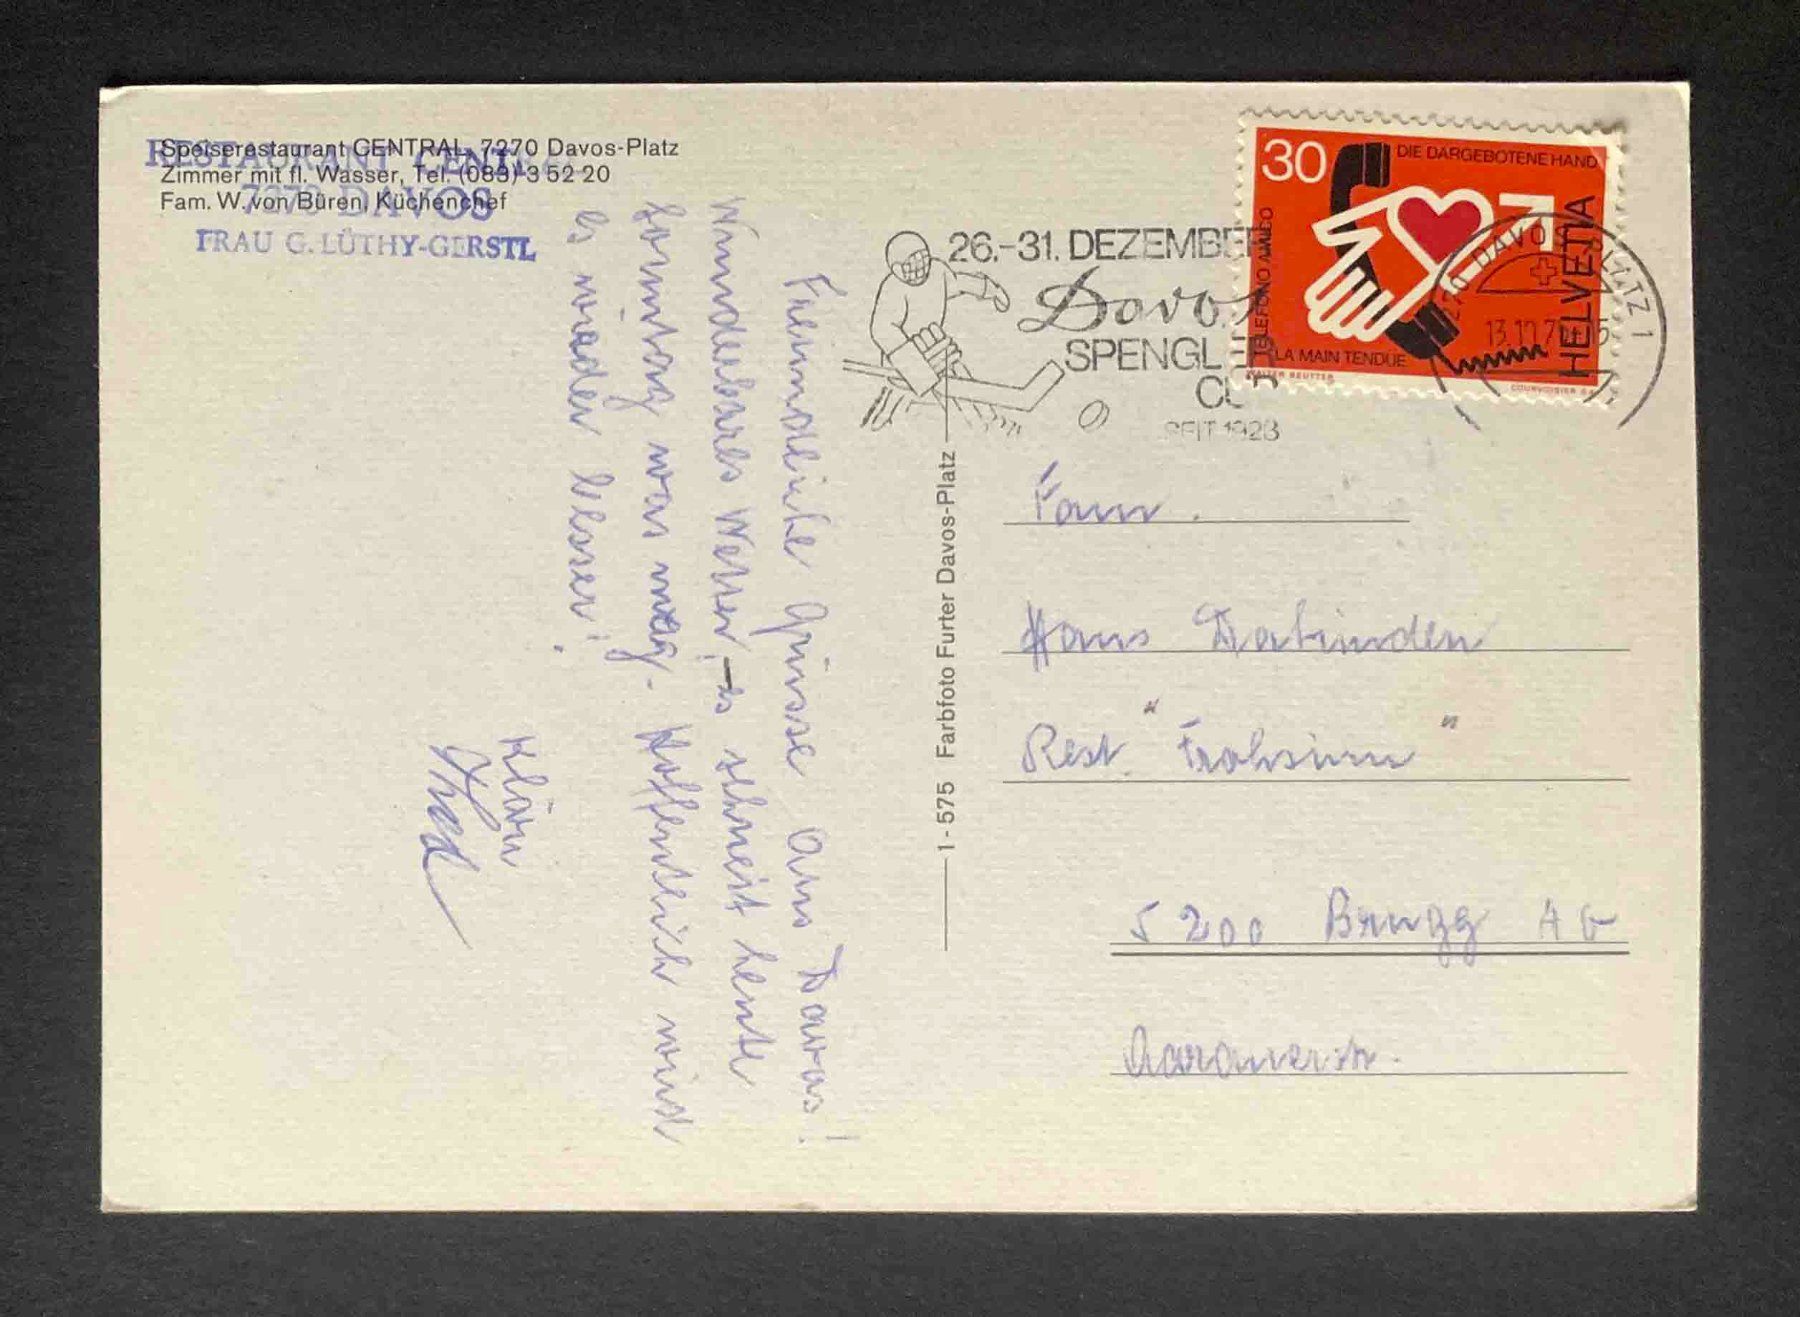 Speiserestaurant CENTRAL, 7270 Davos-Platz
Zimmer mit fl. Wasser, Tel. (083) 3 52 20
Fam. W. von Büren, Küchenchef
RESTAURANT CENTRAL
7270 DAVOS
FRAU C. LÜTHY-GERSTL
26.-31. DEZEMBER
Davos
SPENGLER
CUP
SEIT 1923
30
DIE DARGEBOTENE HAND
TELEFONO AMICO
LA MAIN TENDUE
HELVETIA
WALTER REUTTER
COURVOISIER
7270 DAVOS PLATZ 1
13.10.7
Freundliche Grüsse aus Davos!
Wunderbares Wetter, - es schneit heute
Sonntag was mag. Hoffentlich wird
es wieder besser!
Klärli
1 - 575 Farbfoto Furter Davos-Platz
Fam.
Hans
Rest. "Frohsinn"
5200 Brugg AG
Aarauerstr.